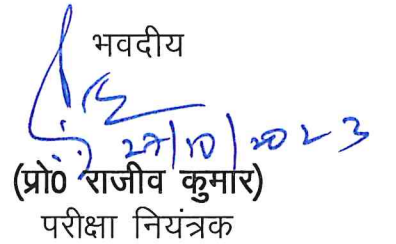 भवदीय
27/10/2023
(प्रो0 राजीव कुमार)
परीक्षा नियंत्रक